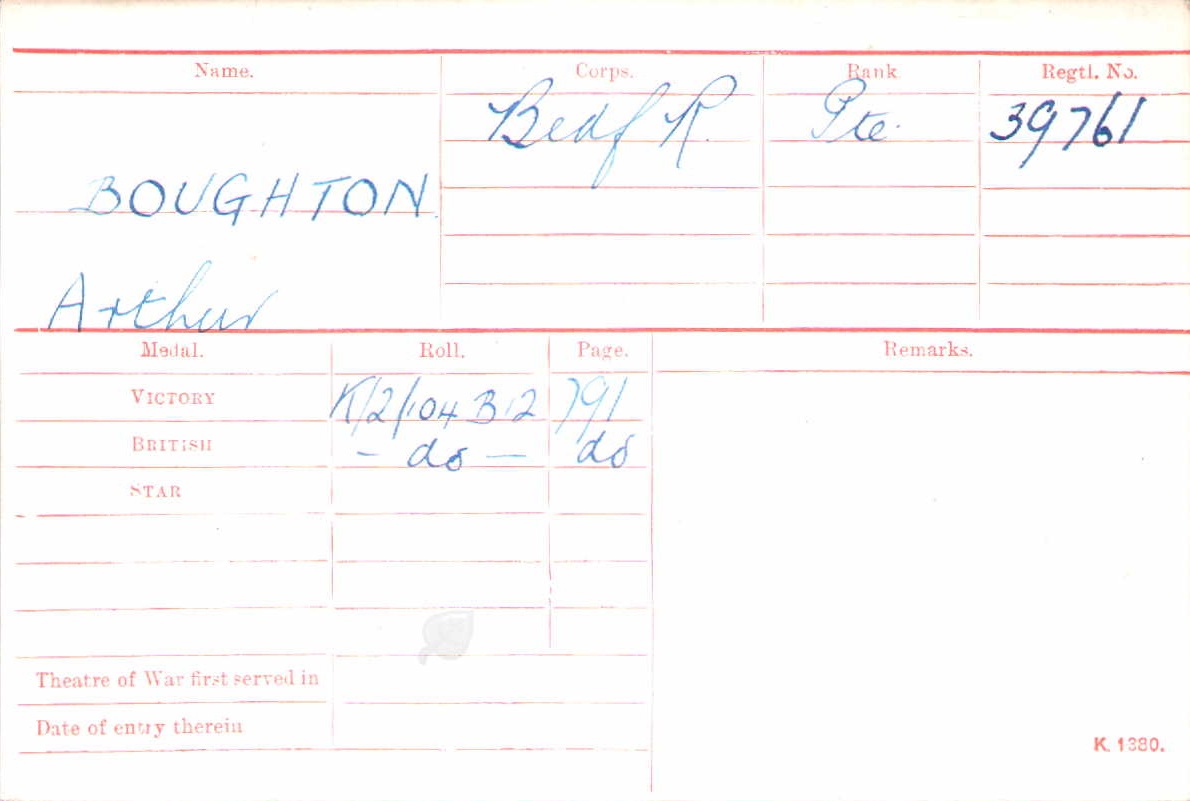 Name. Corps. Rank Regtl. No.
Bedf R. Pte. 39761
BOUGHTON
Arthur
Medal. Roll. Page. Remarks.
VICTORY K/2/104 B12 791
BRITISH - do - do
STAR
Theatre of War first served in
Date of entry therein
K. 1380.